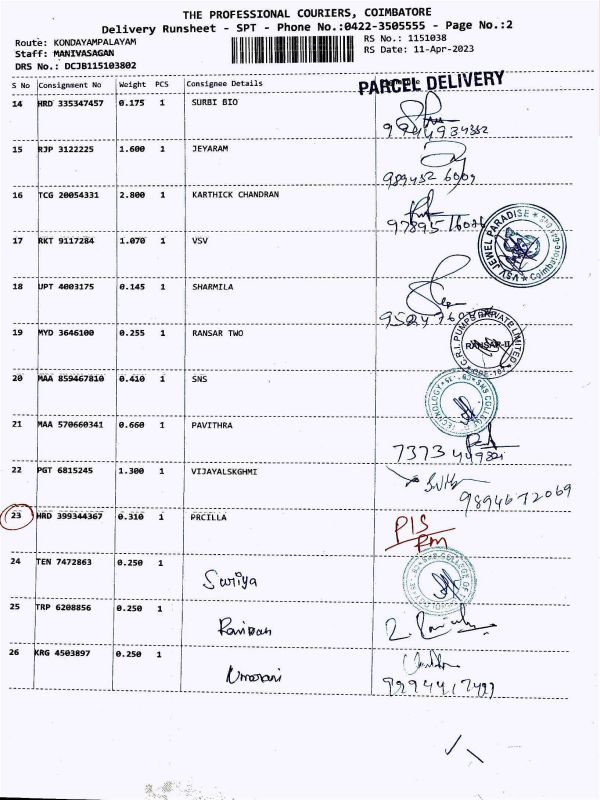 THE PROFESSIONAL COURIERS, COIMBATORE
Delivery Runsheet - SPT - Phone No.:0422-3505555 - Page No.:2
Route: KONDAYAMPALAYAM RS No.: 1151038
Staff: MANIVASAGAN RS Date: 11-Apr-2023
DRS No.: DCJB115103802
S No Consignment No Weight PCS Consignee Details
PARCEL DELIVERY
14 HRD 335347457 0.175 1 SURBI BIO
15 RJP 3122225 1.600 1 JEYARAM
16 TCG 20054331 2.800 1 KARTHICK CHANDRAN
17 RKT 9117284 1.070 1 VSV
VSV JEWEL PARADISE Coimbatore
18 UPT 4003175 0.145 1 SHARMILA
19 MYD 3646100 0.255 1 RANSAR TWO
C.R.I. PUMPS PRIVATE LIMITED RANSAR-II
20 MAA 859467810 0.410 1 SNS
21 MAA 570660341 0.660 1 PAVITHRA
7373
22 PGT 6815245 1.300 1 VIJAYALSKGHMI
9894672069
23 HRD 399344367 0.310 1 PRCILLA
24 TEN 7472863 0.250 1 Suriya
25 TRP 6208856 0.250 1
26 KRG 4503897 0.250 1